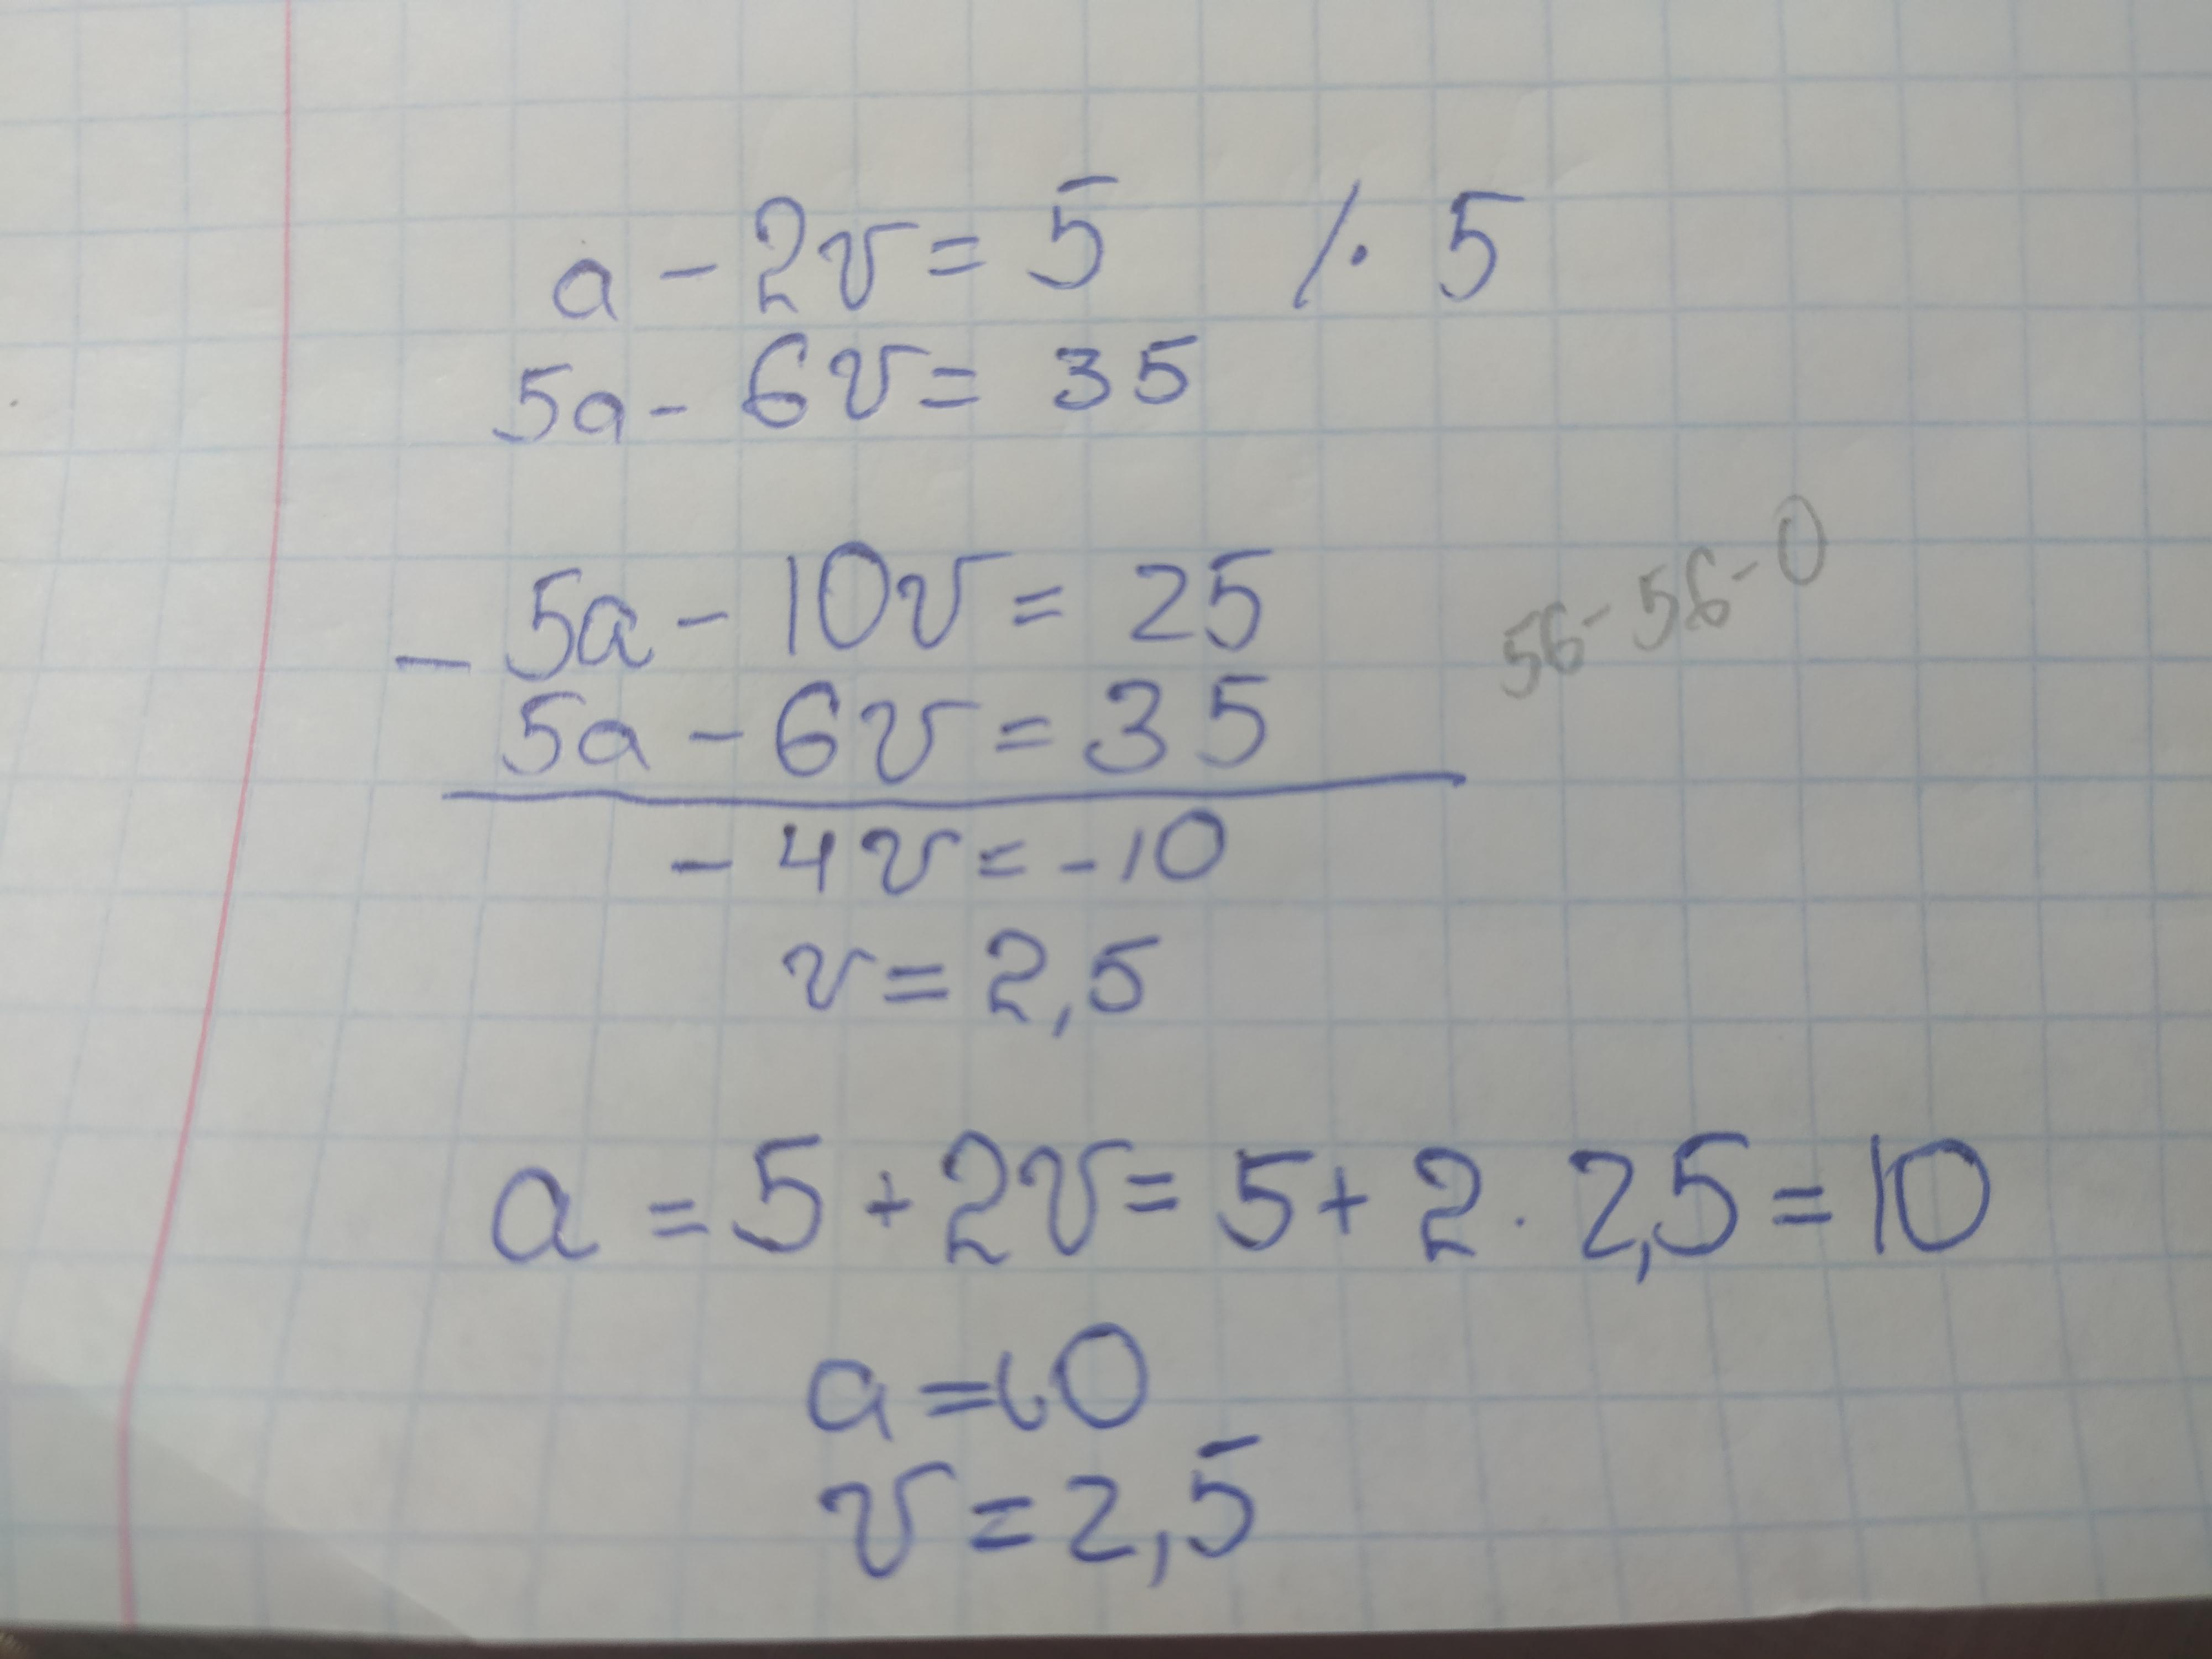 a - 2v = 5 /. 5
5a - 6v = 35
- 5a - 10v = 25
56 - 56 - 0
5a - 6v = 35
- 4v = -10
v = 2,5
a = 5 + 2v = 5 + 2 . 2,5 = 10
a = 10
v = 2,5